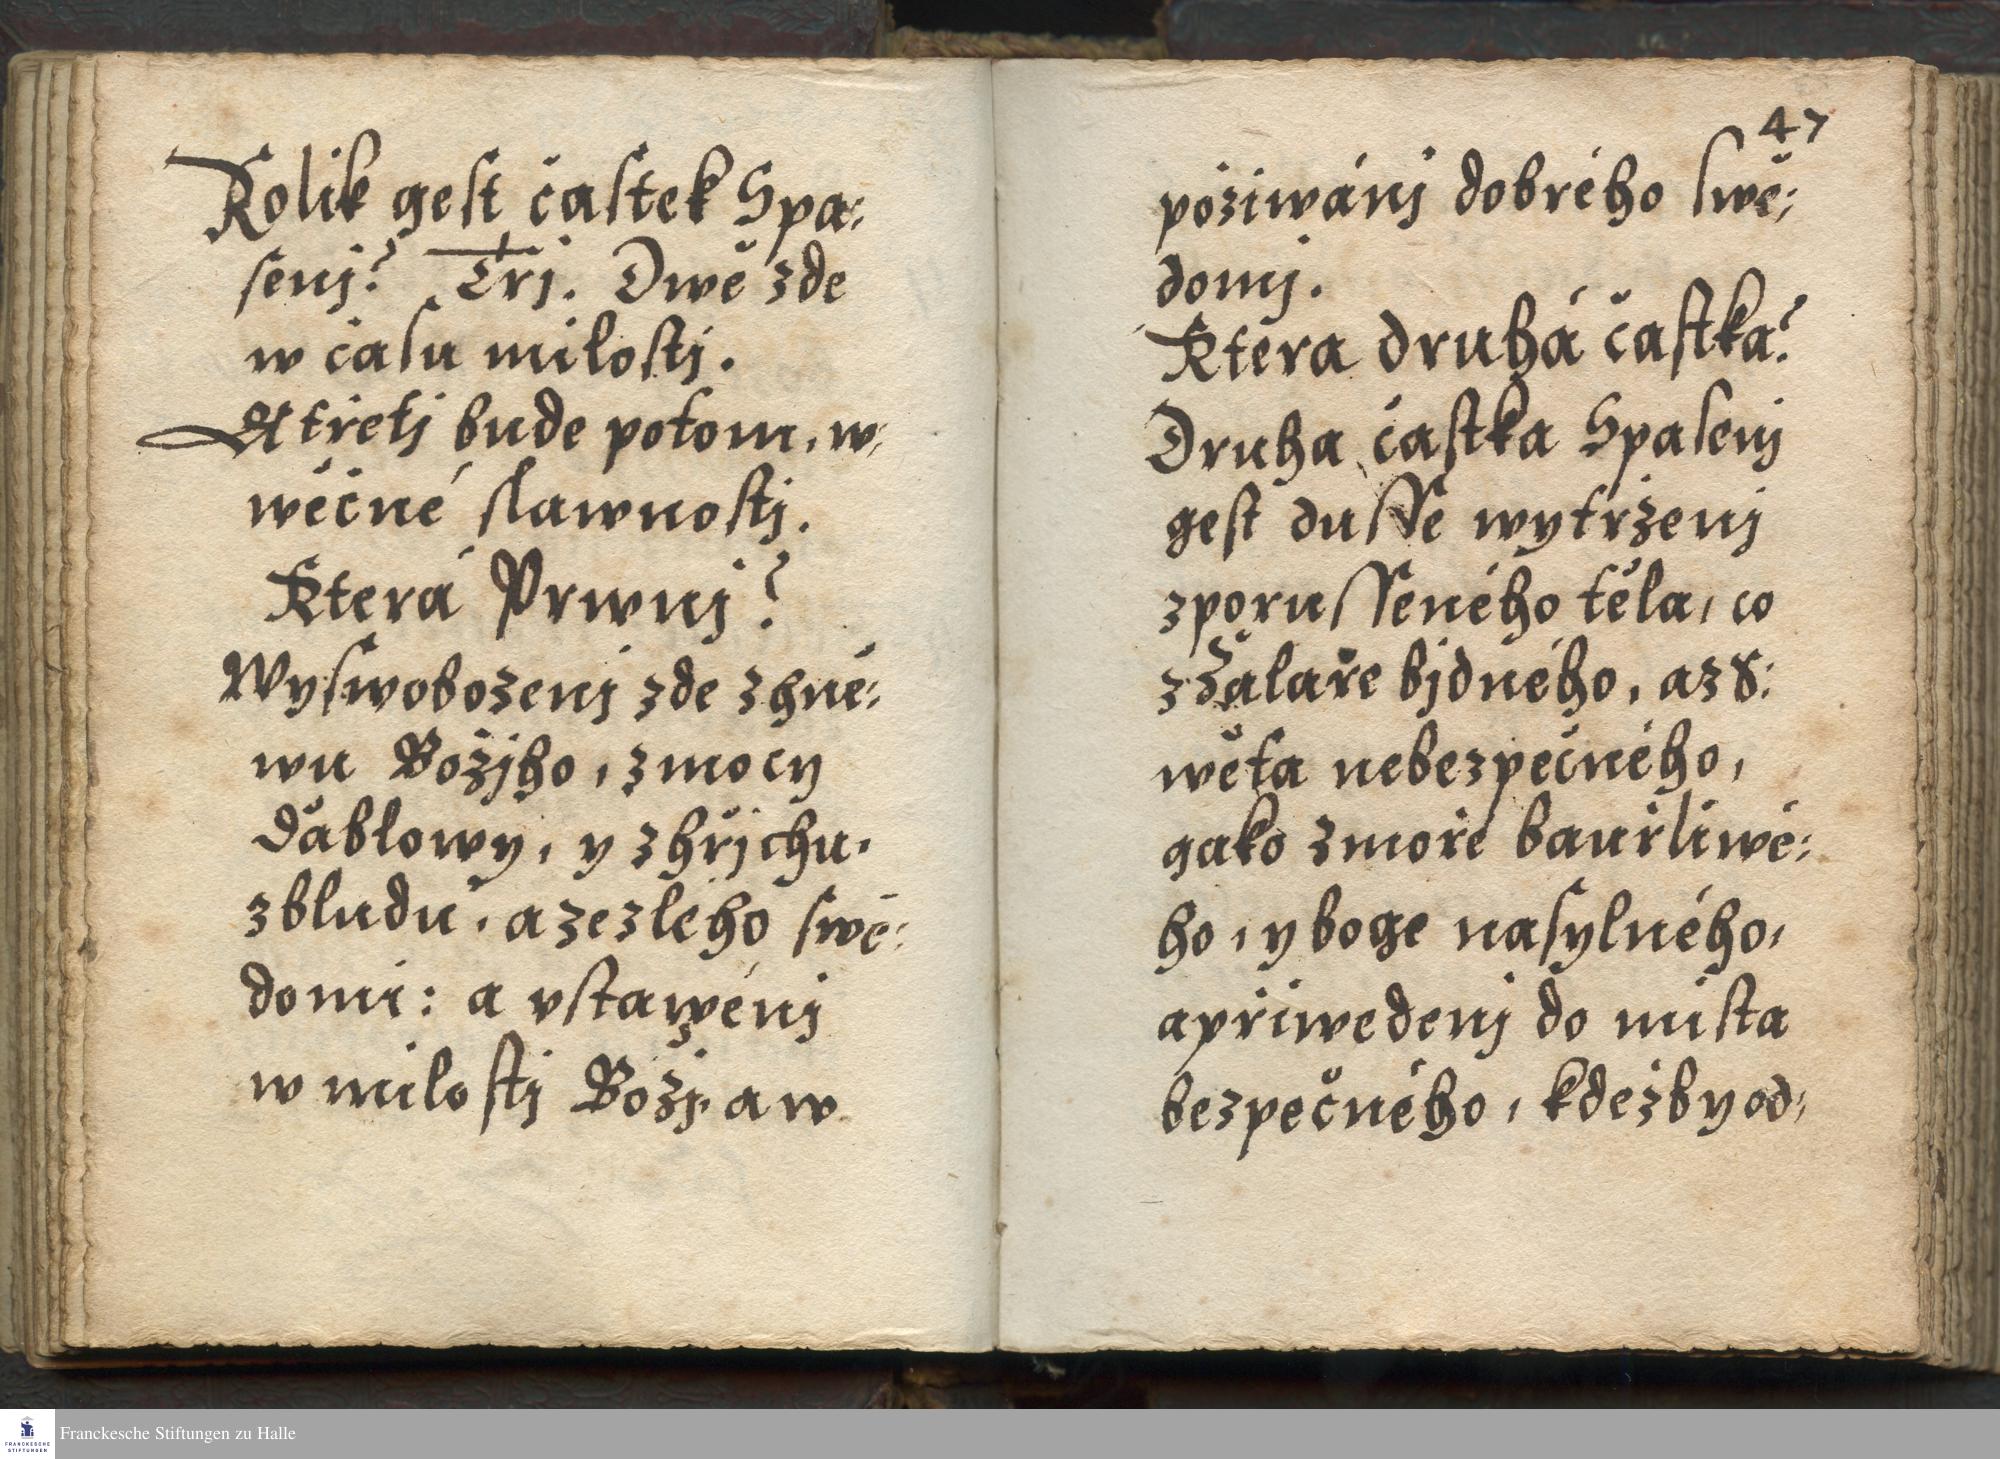 Kolik gest častek Spa:
senj? Trj. Dwě zde
w času milostj.
A třetj bude potom, w:
wěčné slawnostj.
Která Prwnj?
Wyswobozenj zde z hně:
wu Božjho, z mocy
ďáblowy, y z hřjchu,
z bludu, a ze zlého swě:
domi: a vstawenj
w milostj Božj, a w
47
požiwánj dobrého swě:
domj.
Ktera druhá častka?
Druha častka Spasenj
gest dusse wytrženj
z porusseného těla, co
z žalaře bjdného, a z S:
wěta nebezpečného,
gako z moře bauřliwé:
ho, y boge nasylného,
a přiwedenj do mista
bezpečného, kdežby od:
Franckesche Stiftungen zu Halle
FRANCKESCHE
STIFTUNGEN